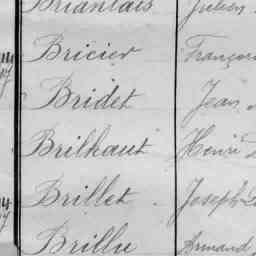 Briantais Julien
Bricier François
Bridet Jean
Brilhaut Henri
Brillet Joseph
Brillu Armand